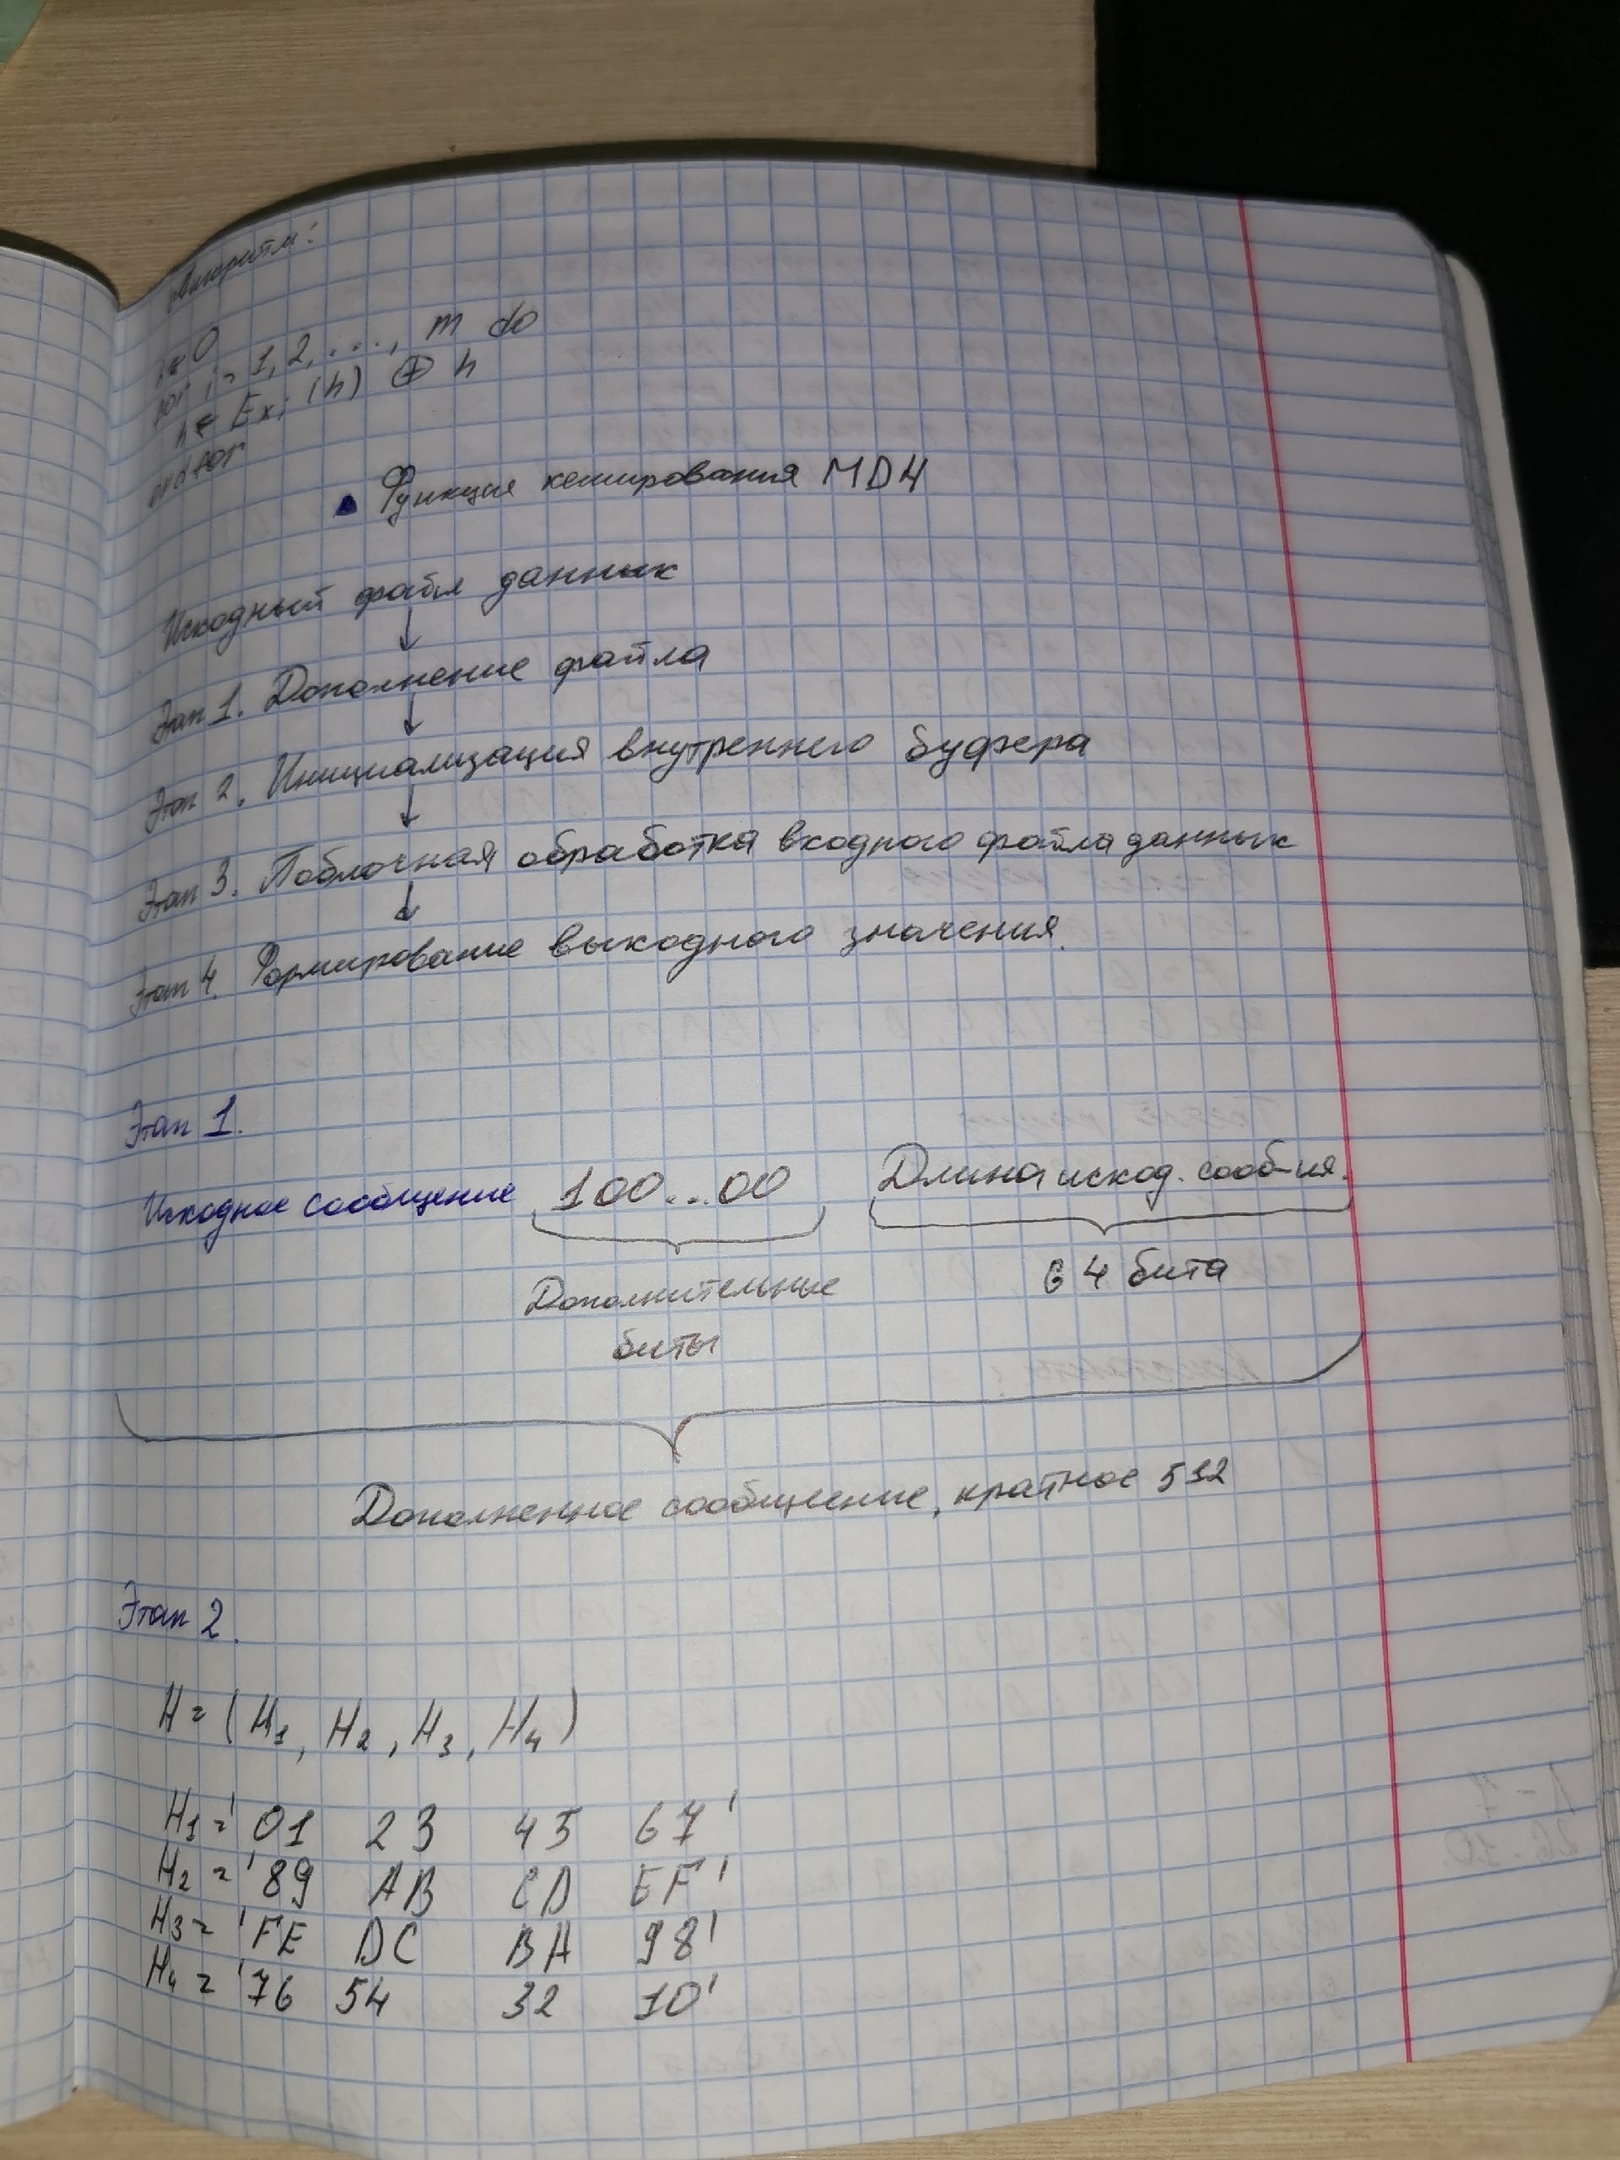 Алгоритм:
h ← 0
for i = 1, 2, ..., m do
h ← Exi (h) ⊕ h
endfor
Функция хеширования MD4
Исходный файл данных
↓
Этап 1. Дополнение файла
↓
Этап 2. Инициализация внутреннего буфера
↓
Этап 3. Поблочная обработка входного файла данных
↓
Этап 4. Формирование выходного значения.
Этап 1.
Исходное сообщение 100...00 Длина исход. сооб-ия.
Дополнительные 64 бита
биты
Дополненное сообщение, кратное 512
Этап 2.
H = (H₁, H₂, H₃, H₄)
H₁ = '01 23 45 67'
H₂ = '89 AB CD EF'
H₃ = 'FE DC BA 98'
H₄ = '76 54 32 10'